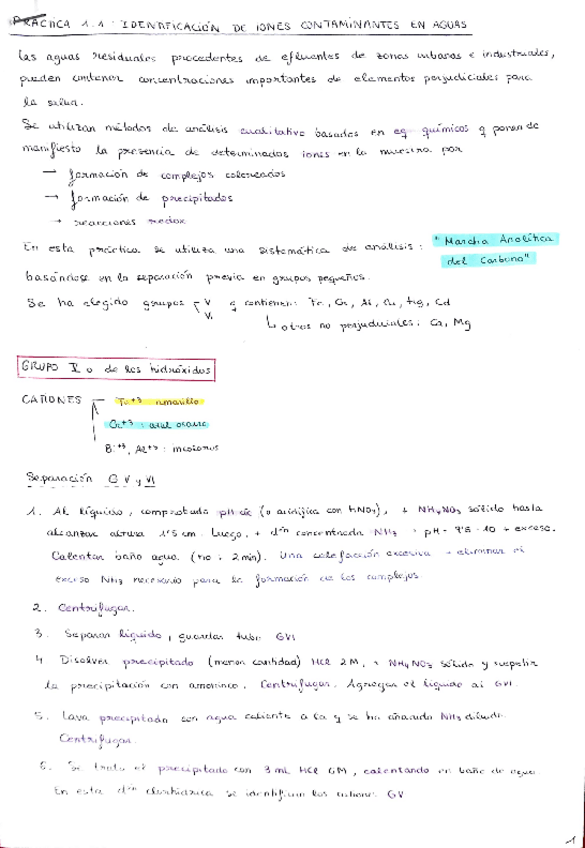 PRÁCTICA 1.1: IDENTIFICACIÓN DE IONES CONTAMINANTES EN AGUAS
Las aguas residuales procedentes de efluentes de zonas urbanas e industriales,
pueden contener concentraciones importantes de elementos perjudiciales para
la salud.
Se utilizan métodos de análisis cualitativo basados en eq químicos q ponen de
manifiesto la presencia de determinados iones en la muestra por
→ formación de complejos coloreados
→ formación de precipitados
→ reacciones redox
En esta práctica se utiliza una sistemática de análisis: "Marcha Analítica
del Carbono"
basándose en la separación previa en grupos pequeños.
Se ha elegido grupos V q contienen: Fe, Cr, Al, Cu, Hg, Cd
VI ↳ otros no perjudiciales: Ca, Mg
GRUPO V o de los hidróxidos
CATIONES Fe+3 amarillo
Cr+3: azul oscuro
Bi+3, Al+3: incoloros
Separación G V y VI
1. Al líquido, comprobado pH (o acidifica con HNO3), + NH4NO3 sólido hasta
alcanzar altura 1'5 cm. Luego, + dón concentrada NH3 pH = 9'5 - 10 + exceso.
Calentar baño agua (no: 2min). Una calefacción excesiva eliminar el
exceso NH3 necesario para la formación de los complejos.
2. Centrifugar.
3. Separar líquido, guardar tubo GVI
4 Disolver precipitado (menor cantidad) HCl 2M, + NH4NO3 sólido y
la precipitación con amoniaco. Centrifugar. Agregar el líquido al GVI.
5. Lava precipitado con agua caliente a la q se ha añadido NH3 diluido.
Centrifugar.
6. Se trata el precipitado con 3 mL HCl 6M, calentando en baño de agua.
En esta dón clorhídrica se identifican los cationes GV
1